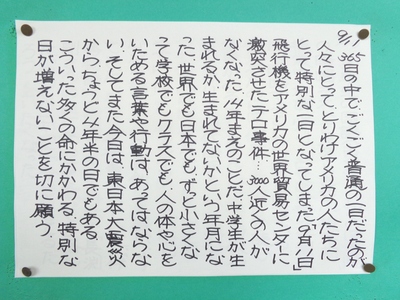 9/11
365日の中でごくごく普通の一日だったのが
人々にとって、とりわけアメリカの人たちに
とって特別な一日となってしまった「9月11日」
飛行機をアメリカの世界貿易センターに
激突させたテロ事件…3000人近くの人が
なくなった。14年まえのことだ。中学生が生
まれるか、生まれてないかという年月にな
った。世界でも日本でも、ずっと小さくな
って学校でもクラスでも、人の体や心を
いためる言葉や行動は、あってはならな
い。そしてまた今日は、東日本大震災
から、ちょうど4年半の日でもある。
こういった多くの命にかかわる、特別な
日が増えないことを切に願う。